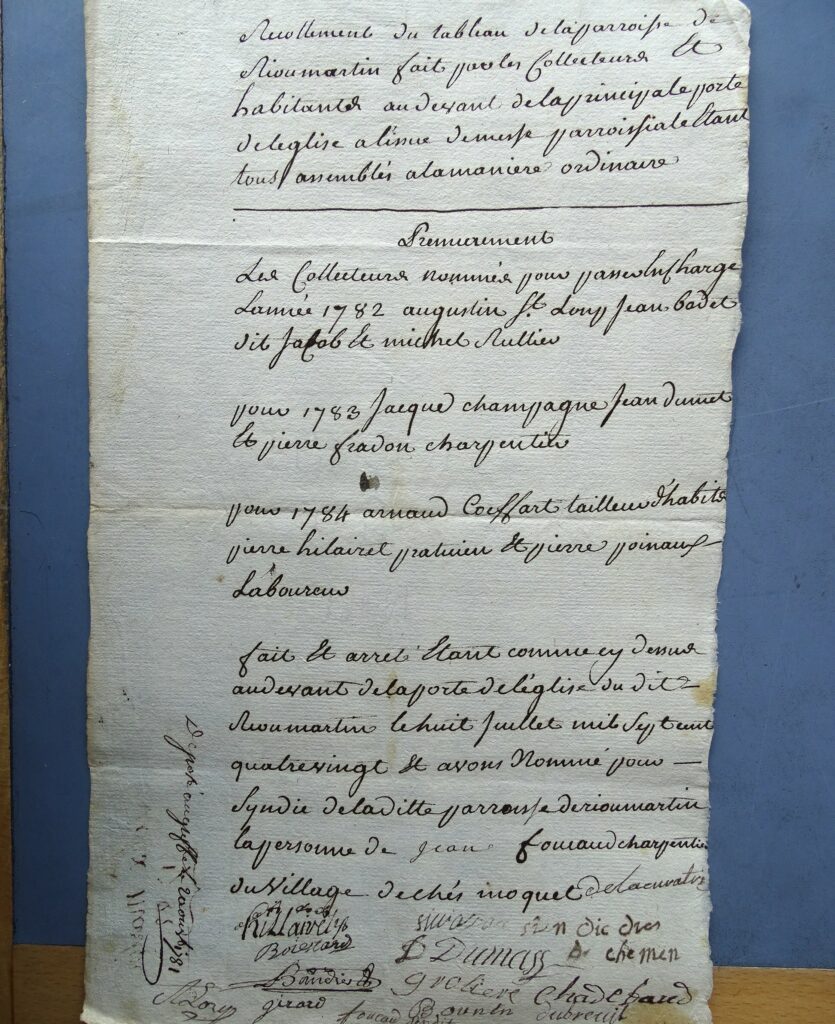 Recollement du tableau de la parroisse de
Rioumartin fait par les Collecteurs Et
habitants au devant de la principale porte
de leglise a l'issue de messe parroissiale Etant
tous assemblés a la maniere ordinaire
Premierement
Les Collecteurs nommés pour passer En Charge
L'année 1782 augustin St. Loup Jean badet
dit Jacob Et michel Rullier
pour 1783 Jacque champagne Jean dumet
Et pierre fradon charpentier
pour 1784 arnaud Coeffart tailleur d'habits
pierre hilairet praticien Et pierre poinaux
Laboureur
fait Et arreté Etant comme cy dessus
au devant de la porte de l'église du dit
Rioumartin le huit Juillet mil Sept cent
quatre vingt Et avons Nommé pour
Syndic de la ditte parroisse de rioumartin
la personne de jean foucaud charpentier
du Village de chés moquet
Boisnard
sin dic des
D Dumas de chemen
girard
groliere
Chadehaud
foucaud
dubreuil
Deposé au greffe Le